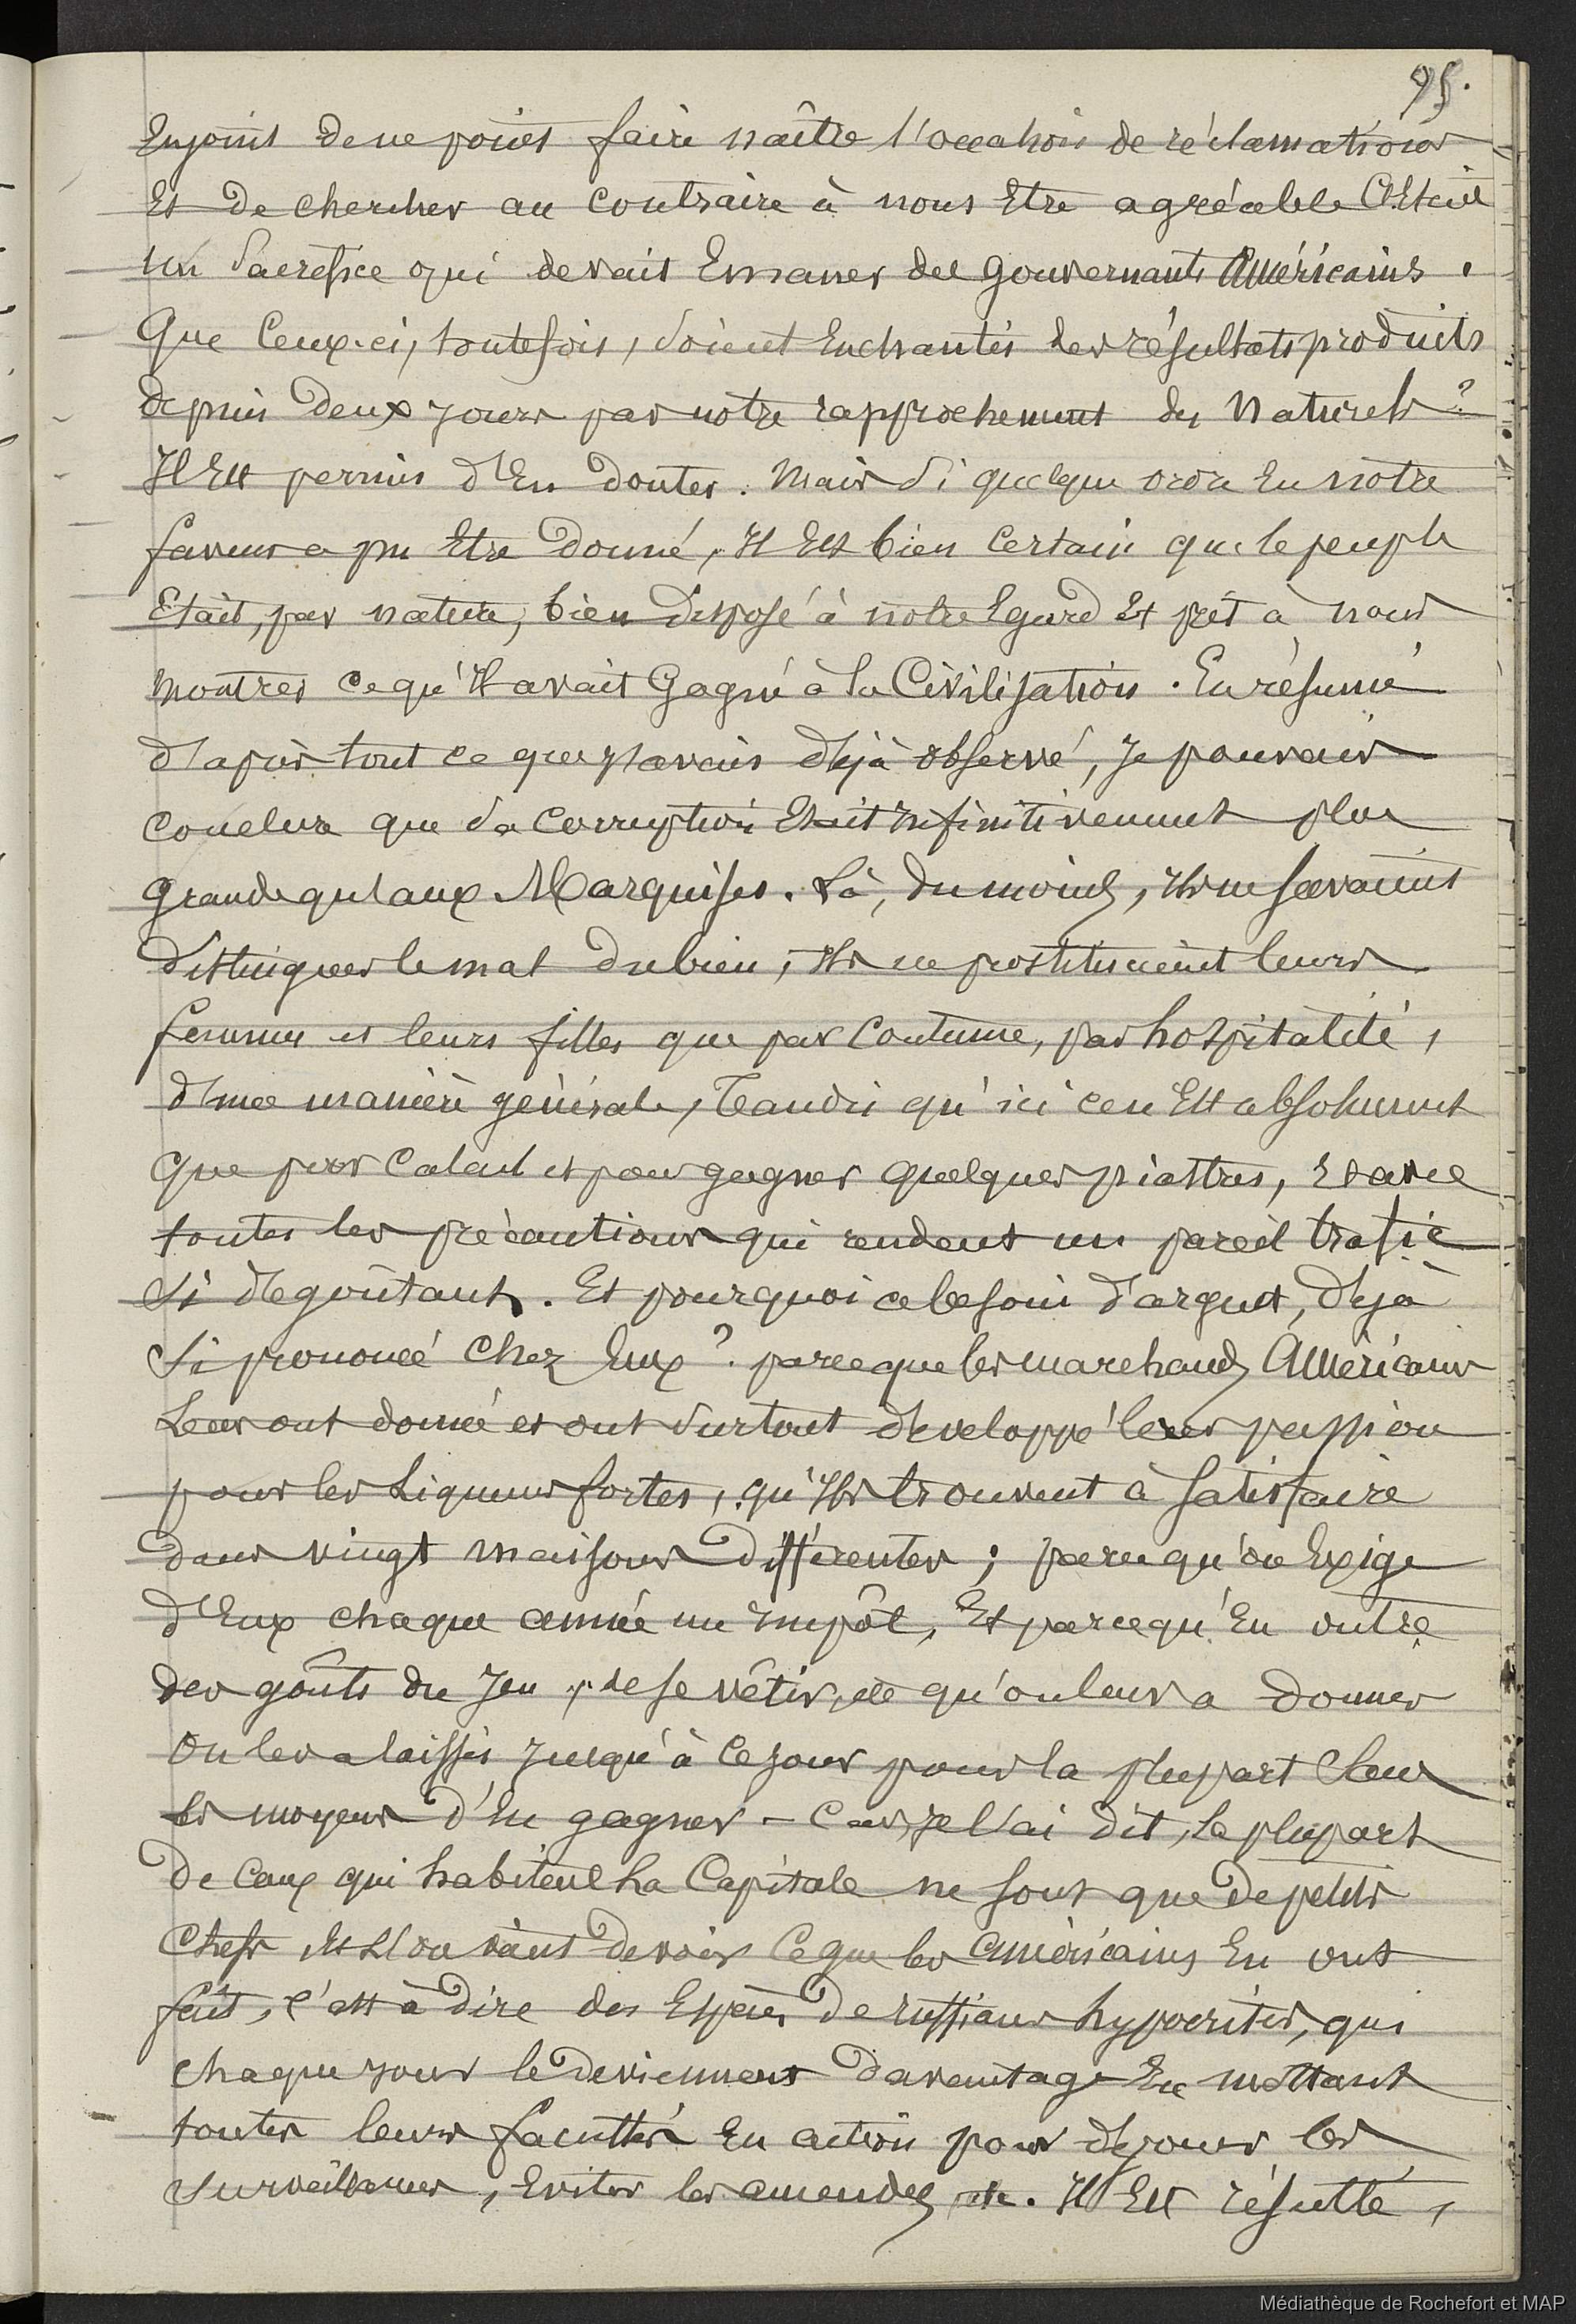 95.
Enjoint de ne point faire naître l'occasion de réclamations
Et de chercher au contraire à nous Etre agréable C'Etait
un Sacrifice qui devait Emaner des gouvernants Américains.
Que Ceux-ci, toutefois, soient Enchantés des résultats produits
depuis deux jours par notre rapprochement des Naturels ?
Il Est permis d'En douter. Mais Si quelque ordre En notre
faveur a pu Etre donné, Il Est bien Certain que le peuple
Etait, par nature, bien disposé à notre Egard Et prêt à nous
montrer ce qu'Il avait Gagné à la Civilisation. En résumé
d'après tout ce que j'avais déjà observé, Je pouvais
conclure que la Corruption Etait Infinitivement plus
grande qu'aux Marquises. Là, du moins, Ils ne savaient
distinguer le mal du bien, Ils ne prostituaient leurs
femmes et leurs filles que par Coutume, par hospitalité,
d'une manière générale, Tandis qu'ici ce n'Est absolument
que par Calcul et pour gagner quelques piastres, Et avec
toutes les précautions qui rendent un pareil trafic
si dégoûtant. Et pourquoi ce besoin d'argent, déjà
Si prononcé Chez Eux ? parce que les marchands Américains
Leur ont donné et ont surtout développé leur passion
pour les Liqueurs fortes, qu'Ils trouvent à satisfaire
dans vingt maisons différentes ; parce qu'on Exige
d'Eux chaque année un Impôt, Et parce qu'En outre
des goûts du Jeu, de se vêtir, etc qu'on leur a donner
on les a laissés Jusqu'à Ce jour pour la plupart Sans
les moyens d'En gagner - Car, je l'ai dit, la plupart
de Ceux qui habitent la Capitale ne sont que de petits
Chefs Et l'on vient de voir Ce que les Américains En ont
fait, c'est à dire des Espèces de ruffians hypocrites, qui
chaque jour le deviennent davantage En mettant
toutes leurs facultés En action pour déjouer les
Surveillances, Eviter les amendes, etc. Il Est résulté,
Médiathèque de Rochefort et MAP